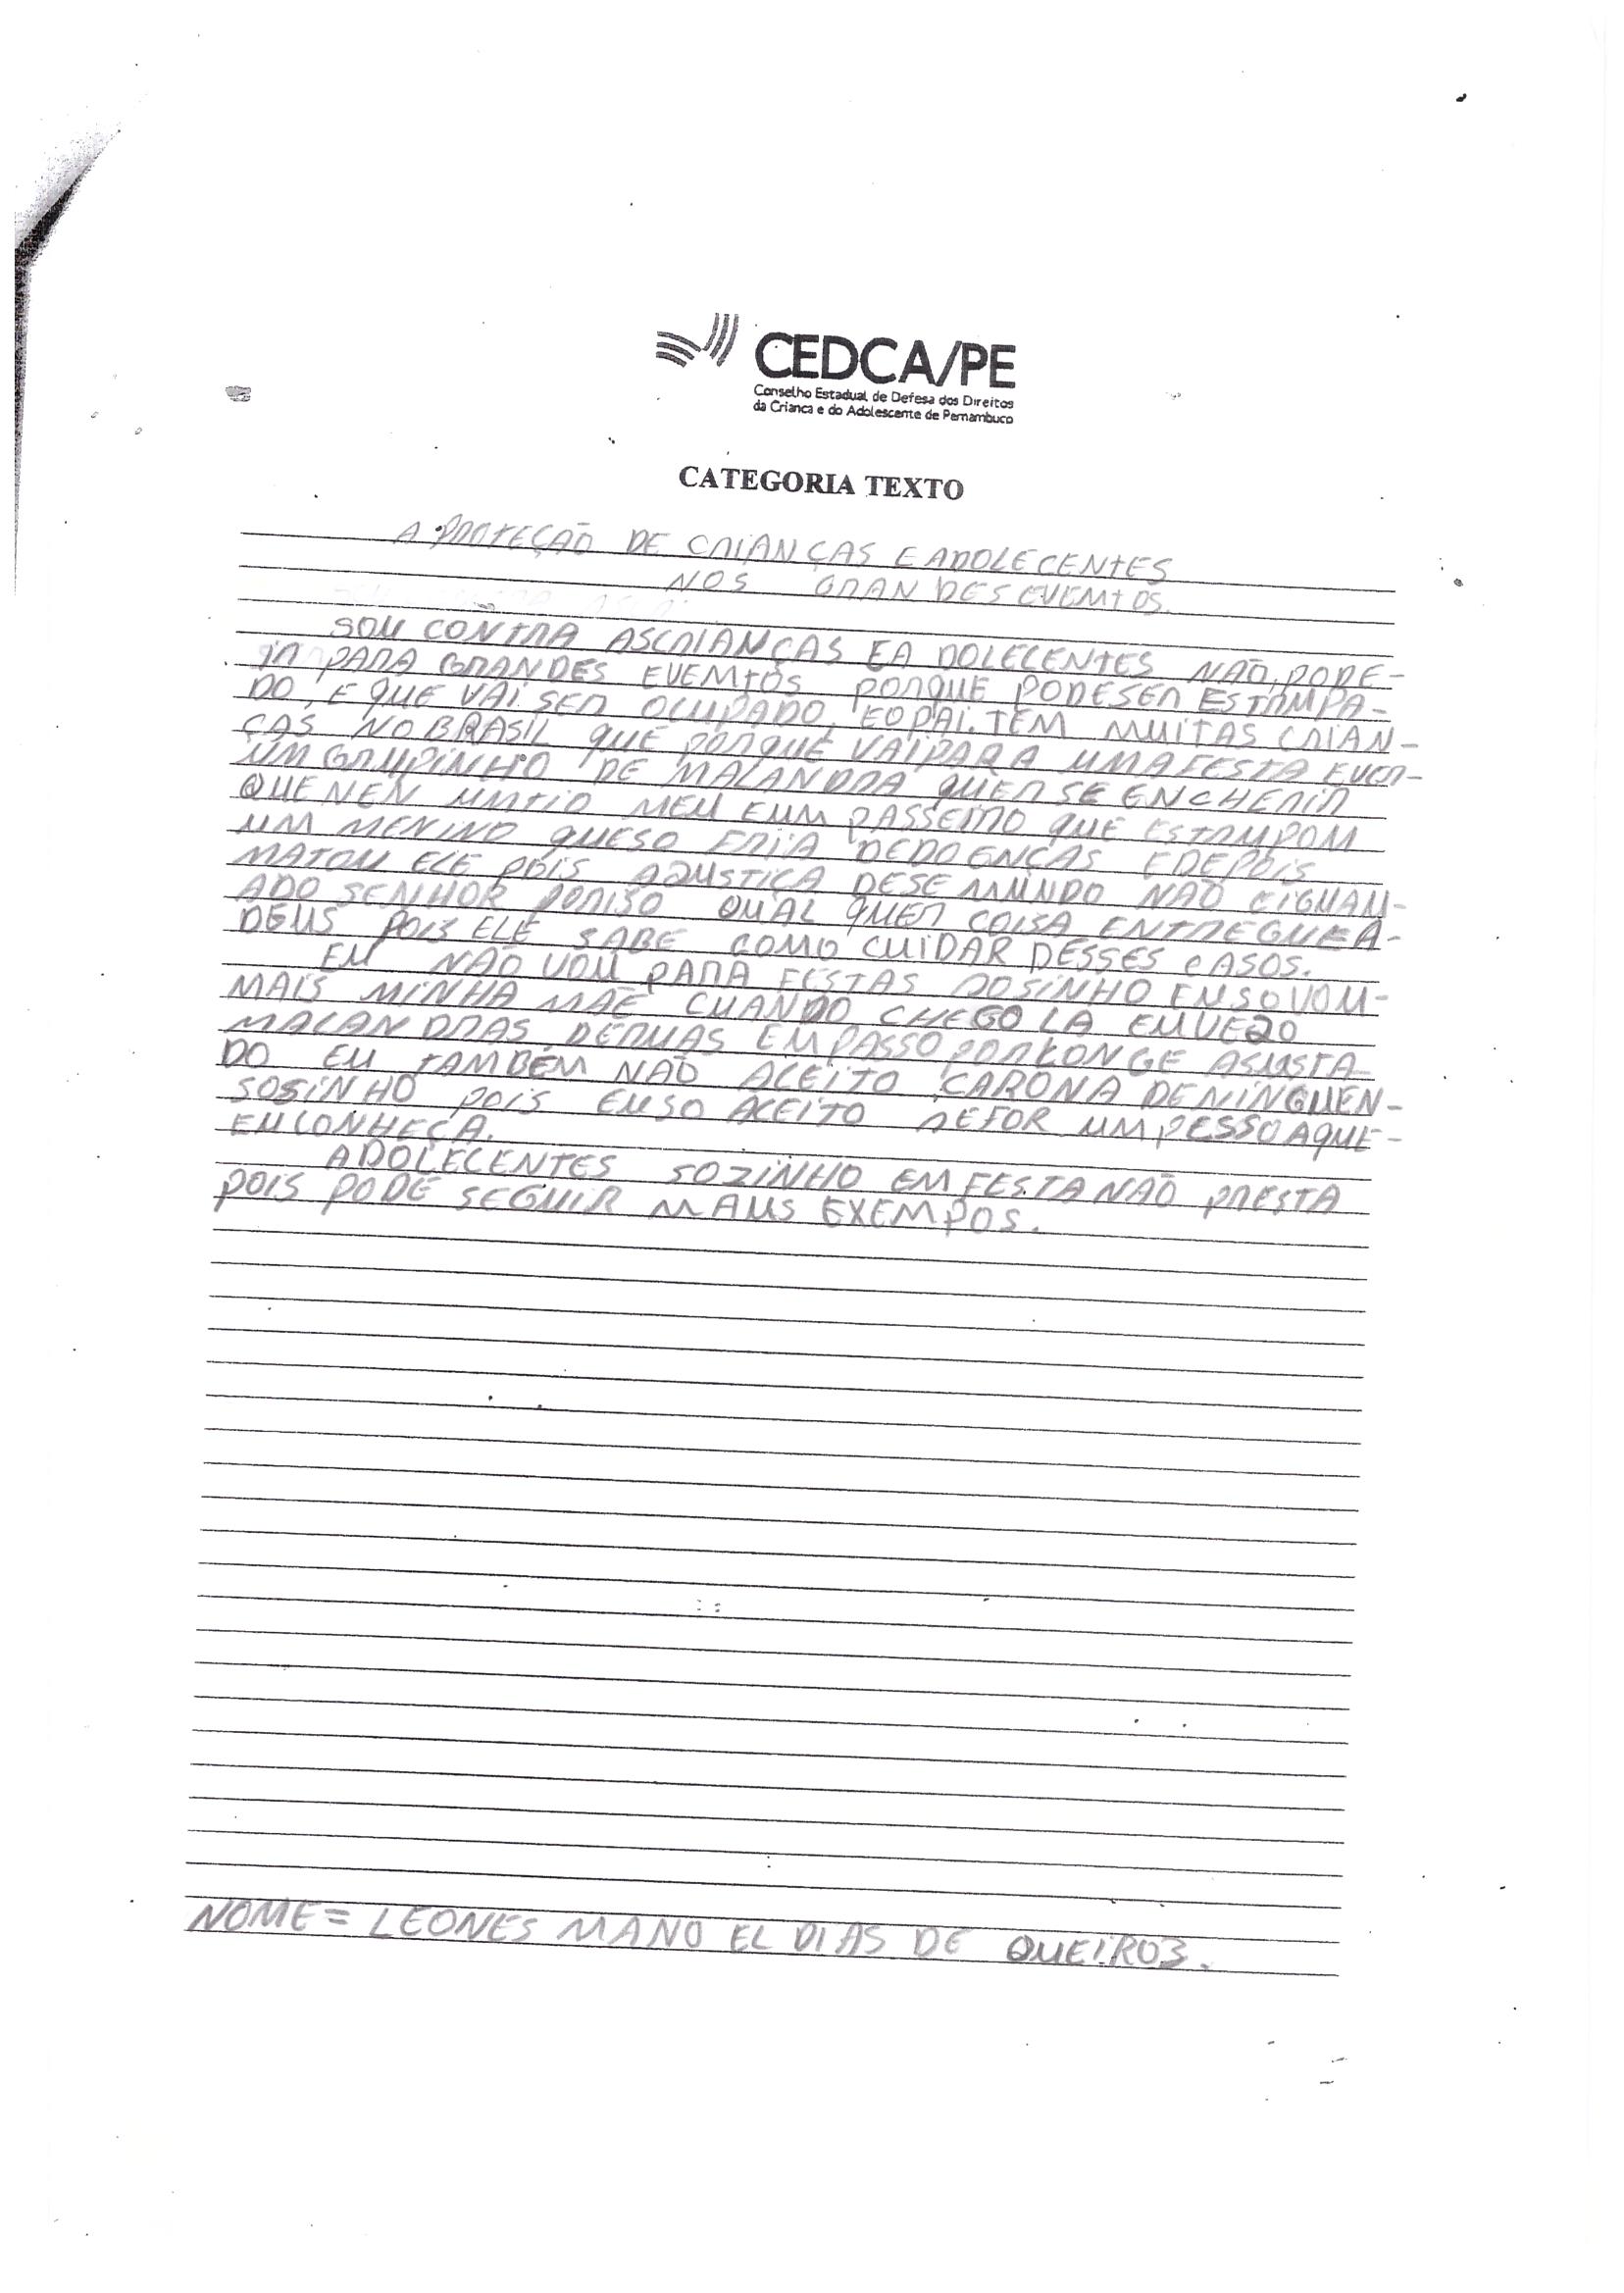 CEDCA/PE
Conselho Estadual de Defesa dos Direitos
da Crianca e do Adolescente de Pernambuco
CATEGORIA TEXTO
A PROTEÇÃO DE CRIANÇAS E ADOLECENTES
NOS GRANDES EVEMTOS.
SOU CONTRA AS CRIANÇAS E A DOLECENTES NÃO, PODE-
IR PARA GRANDES EVEMTOS PORQUE PODE SER ESTRMPA-
DO, E QUE VAI SER OCUPADO, E O PAI. TEM MUITAS CRIAN-
ÇAS NO BRASIL QUE PORQUE VAI PARA UMA FESTA E VER-
UM GRUPINHO DE MALANDRA QUER SE ENCHERIR
QUE NEN UM TIO MEU E UM PASSEIRO QUE ESTRUPOM
UM MENINO QUE SO FRIA DE DOENÇAS E DEPOIS
MATOU ELE POIS A JUSTIÇA DESE MUNDO NÃO E IGUAU-
A DO SENHOR PORISO QUAL QUER COISA ENTREGUE A-
DEUS POIS ELE SABE COMO CUIDAR DESSES CASOS.
EU NÃO VOU PARA FESTAS SOSINHO EU SO VOU-
MAIS MINHA MÃE CUANDO CHEGO LA EU VEJO
MALANDRAS DE RUAS EM PASSO POR LONGE ASUSTA
DO EU TAMBÉM NÃO ACEITO CARONA DE NINGUEN-
SOSINHO POIS EU SO ACEITO SE FOR UM PESSOA QUE-
EU CONHEÇA.
ADOLECENTES SOZINHO EM FESTA NÃO PRESTA
POIS PODE SEGUIR MAUS EXEMPOS.
NOME = LEONES MANO EL DIAS DE QUEIROZ.